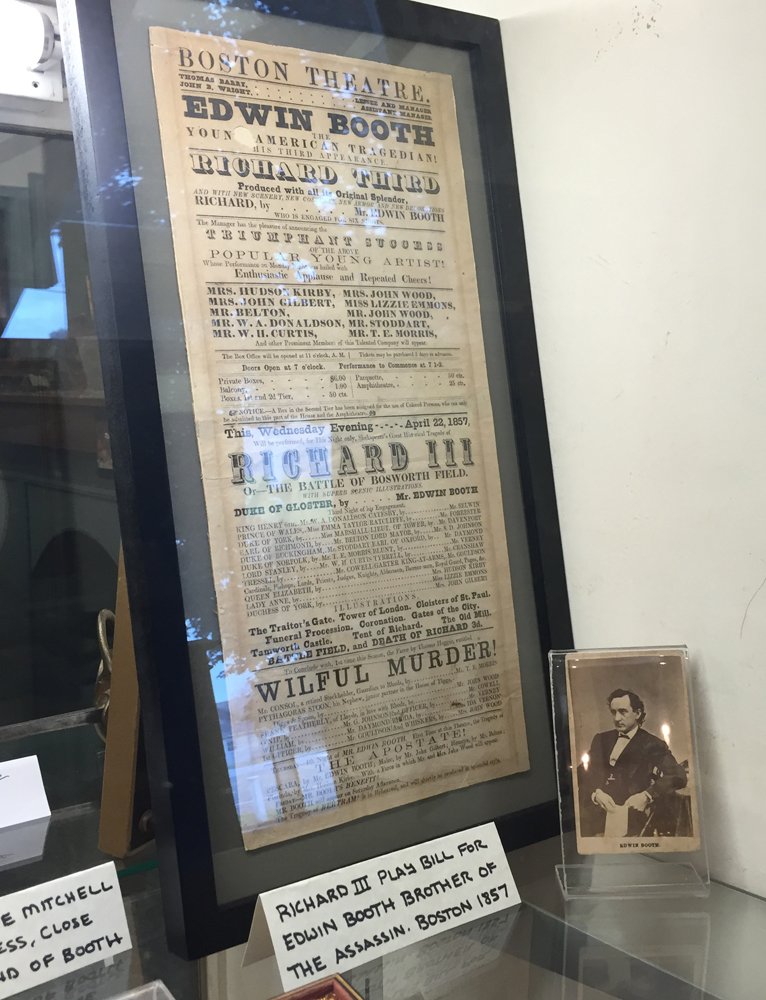 BOSTON THEATRE.
THOMAS BARRY, LESSEE AND MANAGER
JOHN B. WRIGHT, ASSISTANT MANAGER
EDWIN BOOTH
THE
YOUNG AMERICAN TRAGEDIAN!
HIS THIRD APPEARANCE
RICHARD THIRD
Produced with all its Original Splendor,
AND WITH NEW SCENERY, NEW
RICHARD, by Mr. EDWIN BOOTH
WHO IS ENGAGED FOR SIX
The Manager has the pleasure of announcing the
TRIUMPHANT SUCCESS
OF THE ABOVE
POPULAR YOUNG ARTIST!
Whose Performance on Monday was hailed with
Enthusiastic Applause and Repeated Cheers!
MRS. HUDSON KIRBY, MRS. JOHN WOOD,
MRS. JOHN GILBERT, MISS LIZZIE EMMONS,
MR. BELTON, MR. JOHN WOOD,
MR. W. A. DONALDSON, MR. STODDART,
MR. W. H. CURTIS, MR. T. E. MORRIS,
And other Prominent Members of this Talented Company will appear.
The Box Office will be opened at 11 o'clock, A. M. Tickets may be purchased 3 days in advance.
Doors Open at 7 o'clock. Performance to Commence at 7 1-2.
Private Boxes, $6.00 Parquette, 50 cts.
Balcony, 1.00 Amphitheatre, 25 cts.
Boxes, 1st and 2d Tier, 50 cts
NOTICE.—A Box in the Second Tier has been assigned for the use of Colored Persons, who can only
be admitted to this part of the House and the Amphitheatre.
This, Wednesday Evening - - - - April 22, 1857,
Will be performed, for This Night only, Shakspeare's Great Historical Tragedy of
RICHARD III
Or—THE BATTLE OF BOSWORTH FIELD.
WITH SUPERB SCENIC ILLUSTRATIONS.
DUKE OF GLOSTER, by Mr. EDWIN BOOTH
Third Night of his Engagement.
KING HENRY 6TH, Mr. W. A. DONALDSON CATESBY, by Mr. SELWIN
PRINCE OF WALES, Miss EMMA TAYLOR RATCLIFFE, by Mr. FORRESTER
DUKE OF YORK, by Miss MARSHALL LIEUT. OF TOWER, by Mr. DAVENPORT
EARL OF RICHMOND, by Mr. BELTON LORD MAYOR, by Mr. S. D. JOHNSON
DUKE OF BUCKINGHAM, Mr. STODDART EARL OF OXFORD, by Mr. DAYMOND
DUKE OF NORFOLK, by Mr. T. E. MORRIS BLUNT, by Mr. VERNEY
LORD STANLEY, by Mr. W. H CURTIS TYRRELL, by Mr. CRANSHAW
TRESSEL, by Mr. COWELL GARTER KING-AT-ARMS, Mr. GOULDSON
Cardinals, Bishops, Lords, Priests, Judges, Knights, Aldermen, Banner men, Royal Guard, Pages, &c.
QUEEN ELIZABETH, by Mrs. HUDSON KIRBY
LADY ANNE, by Miss LIZZIE EMMONS
DUCHESS OF YORK, by Mrs. JOHN GILBERT
ILLUSTRATIONS.
The Traitor's Gate. Tower of London. Cloisters of St. Paul.
Funeral Procession. Coronation. Gates of the City.
Tamworth Castle. Tent of Richard. The Old Mill.
BATTLE FIELD, and DEATH OF RICHARD 3d.
To Conclude with, 1st time this Season, the Farce by Thomas Higgie, entitled
WILFUL MURDER!
Mr. CONSOL, a retired Stockholder, Guardian to Rhoda, by Mr. T. E. MORRIS
PYTHAGORAS SPOON, his Nephew, junior partner in the House of
Mr. JOHN WOOD
Mr. COWELL
Mr. VERNEY
WILLIAM,
Mr. EDWIN BOOTH, First Time at this Theatre, the Tragedy of
THE APOSTATE!
PESCARA, by Mr. EDWIN BOOTH; Malec, by Mr. John Gilbert; Hemeya, by Mr. Belton;
MR. BOOTH'S BENEFIT!
The Tragedy of "BERTRAM"
EDWIN BOOTH
RICHARD III PLAY BILL FOR
EDWIN BOOTH BROTHER OF
THE ASSASSIN. BOSTON 1857
E MITCHELL
ESS, CLOSE
ND OF BOOTH